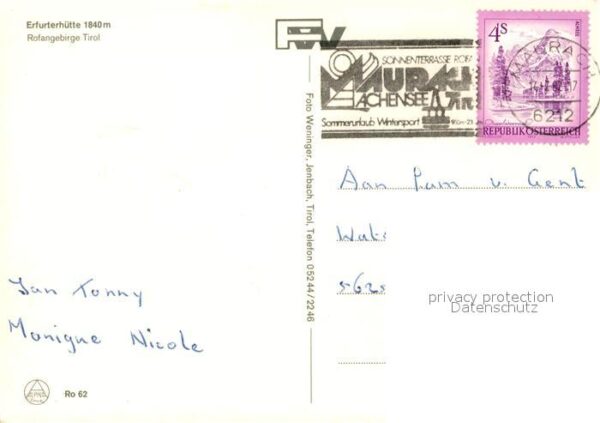 Erfurterhütte 1840 m
Rofangebirge Tirol
SONNENTERRASSE ROFA
MAURACH
ACHENSEE
Sommerurlaub Wintersport
4S
REPUBLIK ÖSTERREICH
MAURACH
6212
Foto Weninger, Jenbach, Tirol, Telefon 05244/2246
Aan Fam v. Gent
Wat
562
Jan Tonny
Monique Nicole
privacy protection
Datenschutz
Ro 62